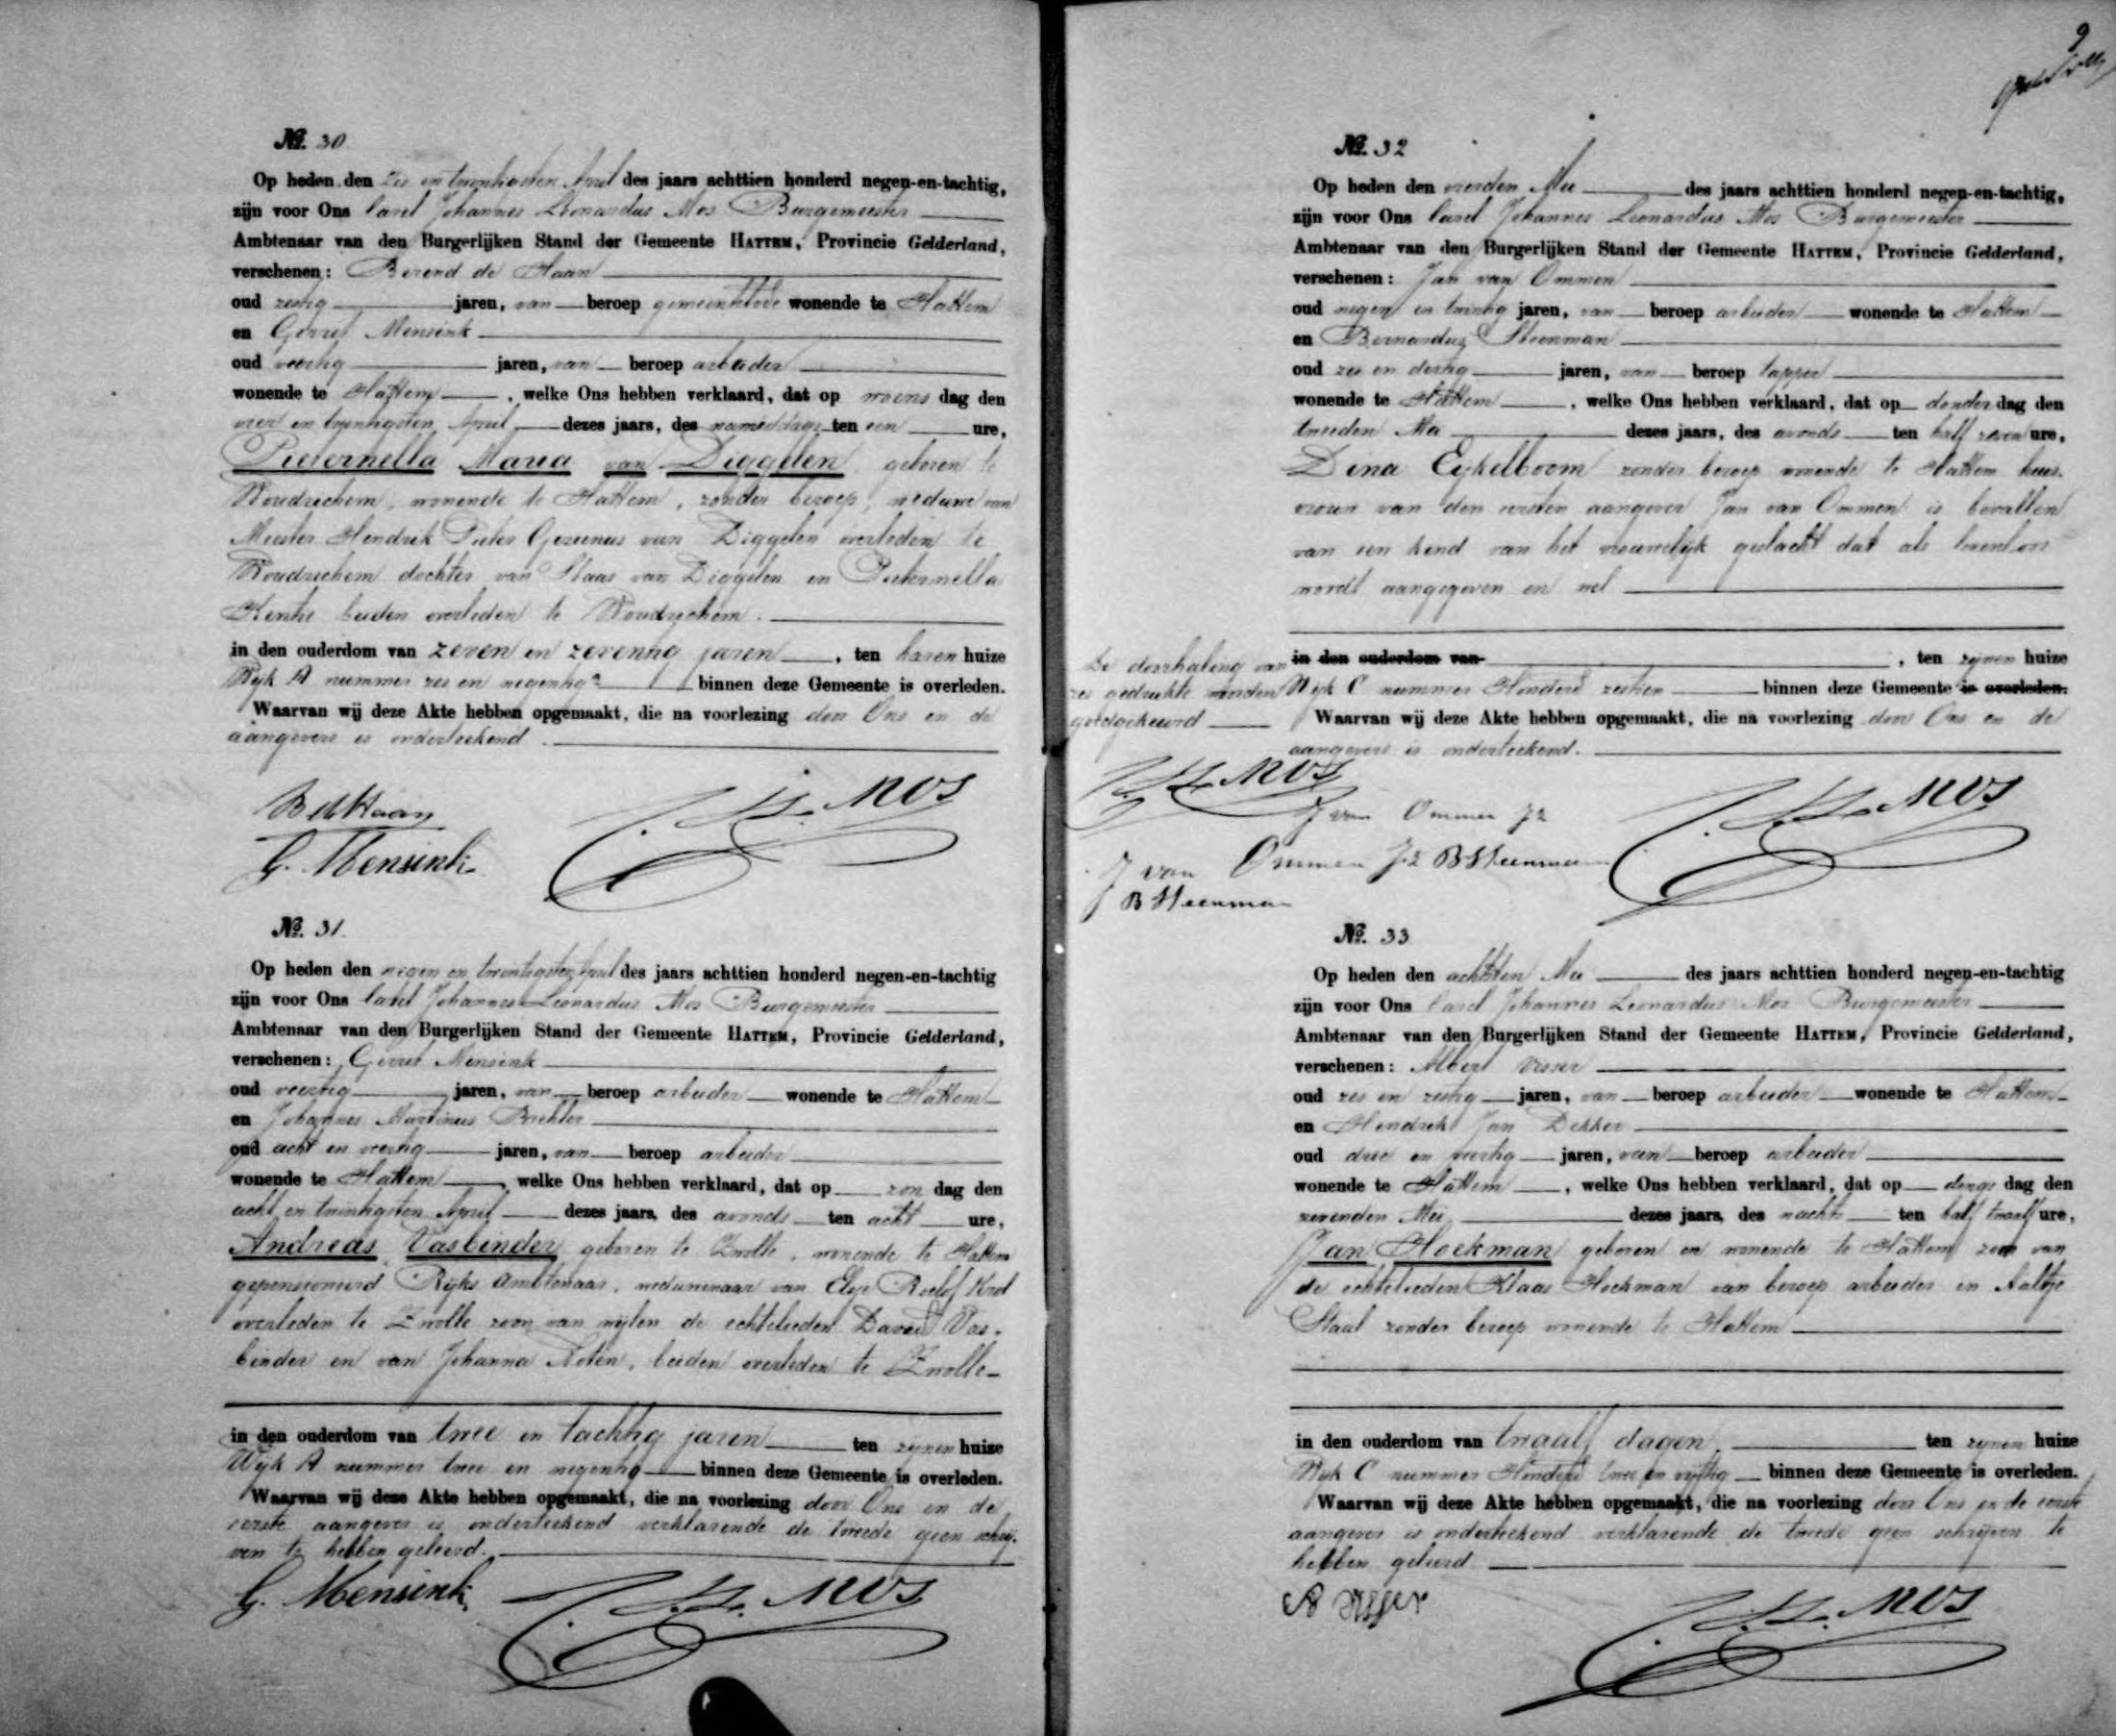 №. 30
Op heden den zes en twintigsten April des jaars achttien honderd negen-en-tachtig,
zijn voor Ons Carel Johannes Leonardus Mos Burgemeester
Ambtenaar van den Burgerlijken Stand der Gemeente HATTEM, Provincie Gelderland,
verschenen: Berend de Haan
oud zestig jaren, van beroep gemeentebode wonende te Hattem
en Gerrit Mensink
oud veertig jaren, van beroep arbeider
wonende te Hattem, welke Ons hebben verklaard, dat op woens dag den
vier en twintigsten April dezes jaars, des namiddags ten een ure,
Pieternella Maria van Diggelen geboren te
Woudrichem, wonende te Hattem, zonder beroep, weduwe van
Meester Hendrik Pieter Gezienus van Diggelen overleden te
Woudrichem dochter van Klaas van Diggelen en Pieternella
beiden overleden te Woudrichem.
in den ouderdom van zeven en zeventig jaren, ten haren huize
Wijk A nummer zes en negentig binnen deze Gemeente is overleden.
Waarvan wij deze Akte hebben opgemaakt, die na voorlezing door Ons en de
aangevers is onderteekend.
B d Haan
G. Mensink
C. J. L. Mos
№. 31
Op heden den negen en twintigsten April des jaars achttien honderd negen-en-tachtig
zijn voor Ons Carel Johannes Leonardus Mos Burgemeester
Ambtenaar van den Burgerlijken Stand der Gemeente HATTEM, Provincie Gelderland,
verschenen: Gerrit Mensink
oud veertig jaren, van beroep arbeider wonende te Hattem
en Johannes Martinus
oud acht en veertig jaren, van beroep arbeider
wonende te Hattem, welke Ons hebben verklaard, dat op zon dag den
acht en twintigsten April dezes jaars, des avonds ten acht ure,
Andreas Vasbinder geboren te Zwolle, wonende te Hattem
gepensioneerd Rijks Ambtenaar, weduwnaar van Elsje Roelof Krol
overleden te Zwolle zoon van wijlen de echtelieden David Vas-
binder en van Johanna Noten, beiden overleden te Zwolle
in den ouderdom van twee en tachtig jaren ten zijnen huize
Wijk A nummer twee en negentig binnen deze Gemeente is overleden.
Waarvan wij deze Akte hebben opgemaakt, die na voorlezing door Ons en de
eerste aangever is onderteekend verklarende de tweede geen schrij-
ven te hebben geleerd.
G. Mensink
C. J. L. Mos
9
№. 32
Op heden den vierden Mei des jaars achttien honderd negen-en-tachtig,
zijn voor Ons Carel Johannes Leonardus Mos Burgemeester
Ambtenaar van den Burgerlijken Stand der Gemeente HATTEM, Provincie Gelderland,
verschenen: Jan van Ommen
oud negen en twintig jaren, van beroep arbeider wonende te Hattem
en Bernardus Steenman
oud zes en dertig jaren, van beroep tapper
wonende te Hattem, welke Ons hebben verklaard, dat op donder dag den
tweeden Mei dezes jaars, des avonds ten half zeven ure,
Dina Eykelboom zonder beroep wonende te Hattem huis-
vrouw van den eersten aangever Jan van Ommen is bevallen
van een kind van het vrouwelijk geslacht dat als levenloos
wordt aangegeven en wel
in den ouderdom van, ten zijnen huize
Wijk C nummer Honderd zestien binnen deze Gemeente is overleden.
Waarvan wij deze Akte hebben opgemaakt, die na voorlezing door Ons en de
aangevers is onderteekend.
De doorhaling van
zes gedrukte woorden
goedgekeurd
C. J. L. Mos
J van Ommen Jz
B Steenman
J van Ommen Jz
B Steenman
C. J. L. Mos
№. 33
Op heden den achtsten Mei des jaars achttien honderd negen-en-tachtig
zijn voor Ons Carel Johannes Leonardus Mos Burgemeester
Ambtenaar van den Burgerlijken Stand der Gemeente HATTEM, Provincie Gelderland,
verschenen: Albert Visser
oud zes en zestig jaren, van beroep arbeider wonende te Hattem
en Hendrik Jan Dekker
oud drie en veertig jaren, van beroep arbeider
wonende te Hattem, welke Ons hebben verklaard, dat op dings dag den
zevenden Mei dezes jaars, des nachts ten half twaalf ure,
Jan Hoekman geboren en wonende te Hattem zoon van
de echtelieden Klaas Hoekman van beroep arbeider en Aaltje
Staal zonder beroep wonende te Hattem
in den ouderdom van twaalf dagen ten zijnen huize
Wijk C nummer Honderd twee en vijftig binnen deze Gemeente is overleden.
Waarvan wij deze Akte hebben opgemaakt, die na voorlezing door Ons en de eerste
aangever is onderteekend verklarende de tweede geen schrijven te
hebben geleerd
A Visser
C. J. L. Mos